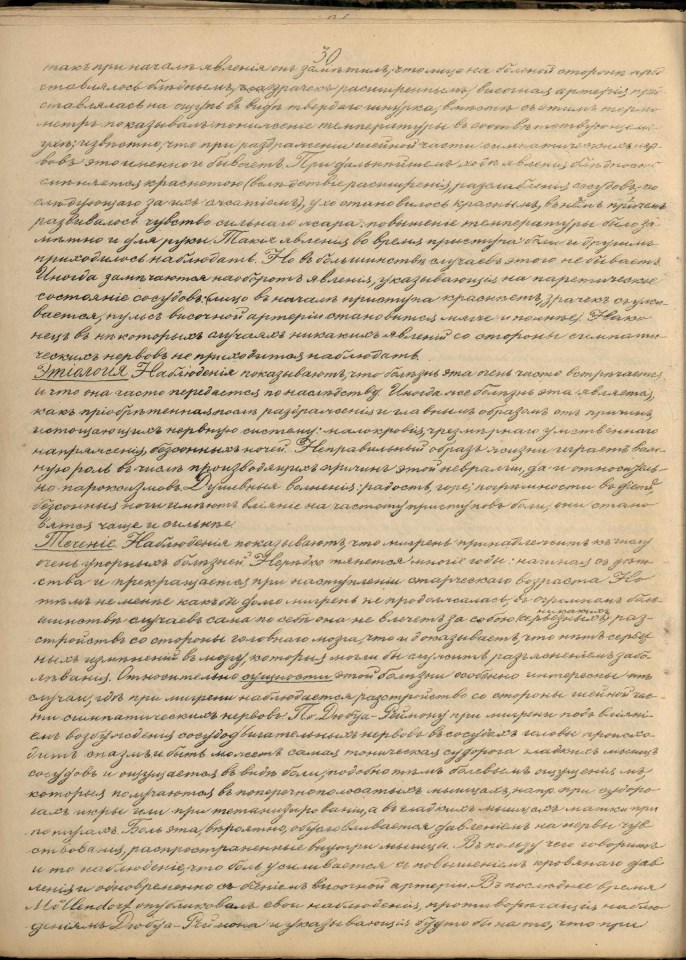 30
такъ при началѣ явленія онъ замѣтилъ, что лицо на больной сторонѣ пред
ставлялось блѣднымъ, зрачекъ расширеннымъ, височная артерія пред
ставлялась на ощупь въ видѣ твердаго шнурка, вмѣстѣ съ этимъ термо
метръ показывалъ пониженіе температуры въ соотвѣтствующемъ
ухѣ; извѣстно, что при раздраженіи шейной части симпатическихъ нер
вовъ это именно и бываетъ. При дальнѣйшемъ ходѣ явленія блѣдность
смѣняется краснотою (вслѣдствіе расширенія, разслабленія сосудовъ, по
слѣдующаго за ихъ сжатіемъ), ухо становилось краснымъ, въ немъ
развивалось чувство сильнаго жара: повышеніе температуры было за
мѣтно и для руки. Такія явленія во время приступа боли и другимъ
приходилось наблюдать. Но въ большинствѣ случаевъ этого не бываетъ.
Иногда замѣчаются наоборотъ явленія, указывающія на паретическое
состояніе сосудовъ: (лицо въ началѣ приступа краснѣетъ, зрачекъ съужи
вается, пульсъ височной артеріи становится мягче и полнѣе). Нако
нецъ въ нѣкоторыхъ случаяхъ никакихъ явленій со стороны симпати
ческихъ нервовъ не приходится наблюдать.
Этіологія. Наблюденія показываютъ, что болѣзнь эта очень часто встрѣчается
и что она часто передается по наслѣдству. Иногда же болѣзнь эта является,
какъ пріобрѣтенная послѣ раздраженія и главнымъ образомъ отъ причинъ,
истощающихъ нервную систему: малокровія, чрезмѣрнаго умственнаго
напряженія, безсонныхъ ночей. Неправильный образъ жизни играетъ важ
ную роль въ числѣ производящихъ причинъ этой невралгіи, да и относитель
но пароксизмовъ. Душевныя волненія: радость, горе; погрѣшности въ діэтѣ,
безсонныя ночи имѣютъ вліяніе на частоту приступовъ боли, они стано
вятся чаще и сильнѣе.
Теченіе. Наблюденія показываютъ, что мигрень принадлежитъ къ числу
очень упорныхъ болѣзней. Нерѣдко тянется многіе годы: начиная съ дѣт
ства и прекращается при наступленіи старческаго возраста. Но
тѣмъ не менѣе какъ бы долго мигрень не продолжалась, въ огромномъ боль
шинствѣ случаевъ сама по себѣ она не влечетъ за собою никакихъ серьезныхъ раз-
стройствъ со стороны головнаго мозга, что и доказываетъ, что нѣтъ серьез
ныхъ измѣненій въ мозгу, которыя могли бы служить разъясненіемъ забо
лѣванія. Относительно сущности этой болѣзни особенно интересны тѣ
случаи, гдѣ при мигрени наблюдается разстройство со стороны шейной час
ти симпатическихъ нервовъ. По Дюбуа-Реймону при мигрени подъ вліяні
емъ возбужденія сосудодвигательныхъ нервовъ въ сосудахъ головы происхо
дитъ спазмъ и быть можетъ самая тоническая судорога гладкихъ мышцъ
сосудовъ и ощущается въ видѣ боли, подобно тѣмъ болевымъ ощущеніямъ,
которыя получаются въ поперечнополосатыхъ мышцахъ, напр. при судоро
гахъ икры или при тетанизированіи, а въ гладкихъ мышцахъ матки при
потугахъ. Боль эта, вѣроятно, обусловливается давленіемъ на нервы чув
ствованія, распространенные внутри мышцы. Въ пользу чего говоритъ
и то наблюденіе, что боль усиливается съ повышеніемъ кровянаго дав
ленія и одновременно съ біеніемъ височной артеріи. Въ послѣднее время
Möllendorf опубликовалъ свои наблюденія, противорѣчащія наблю
деніямъ Дюбуа-Реймона и указывающія будто бы на то, что при